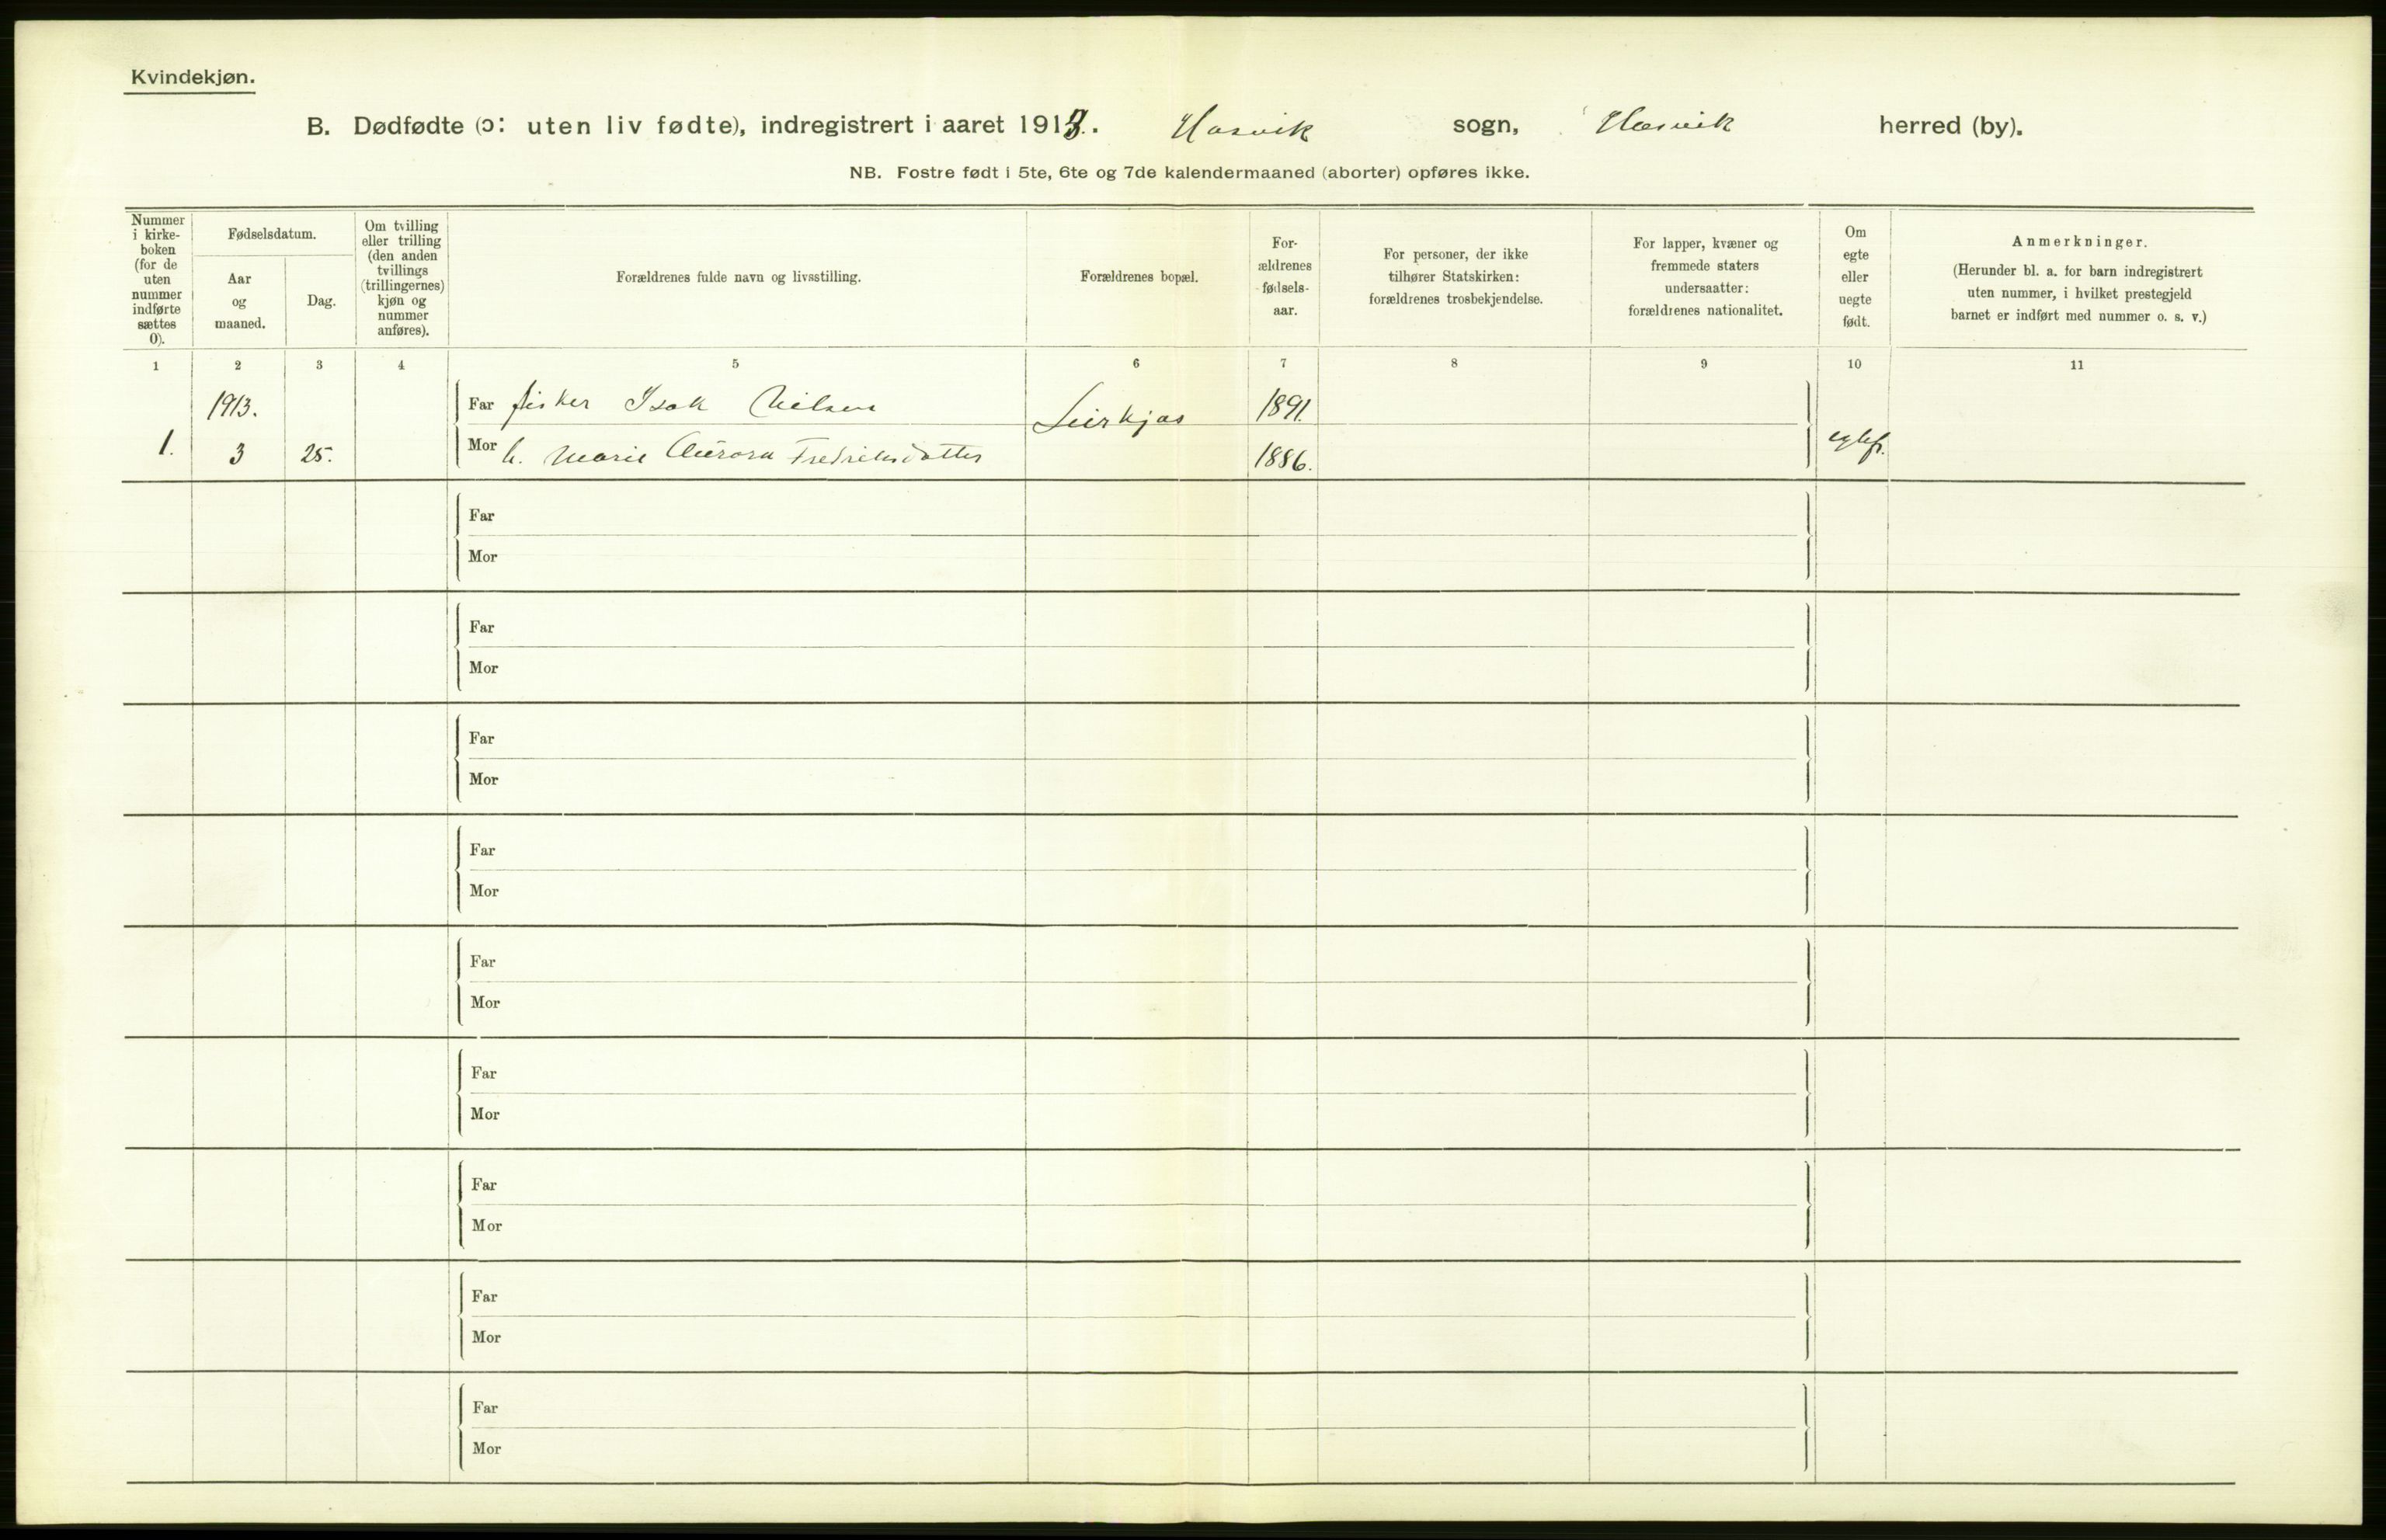 Kvindekjøn.
B. Dødfødte (ɔ: uten liv fødte), indregistrert i aaret 1913. Hasvik sogn, Hasvik herred (by).
NB. Fostre født i 5te, 6te og 7de kalendermaaned (aborter) opføres ikke.
Nummer
i kirke-
boken
(for de
uten
nummer
indførte
sættes
0).
Fødselsdatum.
Aar
og
maaned.
Dag.
Om tvilling
eller trilling
(den anden
tvillings
(trillingernes)
kjøn og
nummer
anføres).
Forældrenes fulde navn og livsstilling.
Forældrenes bopæl.
For-
ældrenes
fødsels-
aar.
For personer, der ikke
tilhører Statskirken:
forældrenes trosbekjendelse.
For lapper, kvæner og
fremmede staters
undersaatter:
forældrenes nationalitet.
Om
egte
eller
uegte
født.
Anmerkninger.
(Herunder bl. a. for barn indregistrert
uten nummer, i hvilket prestegjeld
barnet er indført med nummer o. s. v.)
1 2 3 4 5 6 7 8 9 10 11
1913. Far fisker Isak Nilsen Leirkjos 1891.
1. 3 25. Mor h. Marie Aurora Fredriksdatter 1886. egtef.
Far
Mor
Far
Mor
Far
Mor
Far
Mor
Far
Mor
Far
Mor
Far
Mor
Far
Mor
Far
Mor